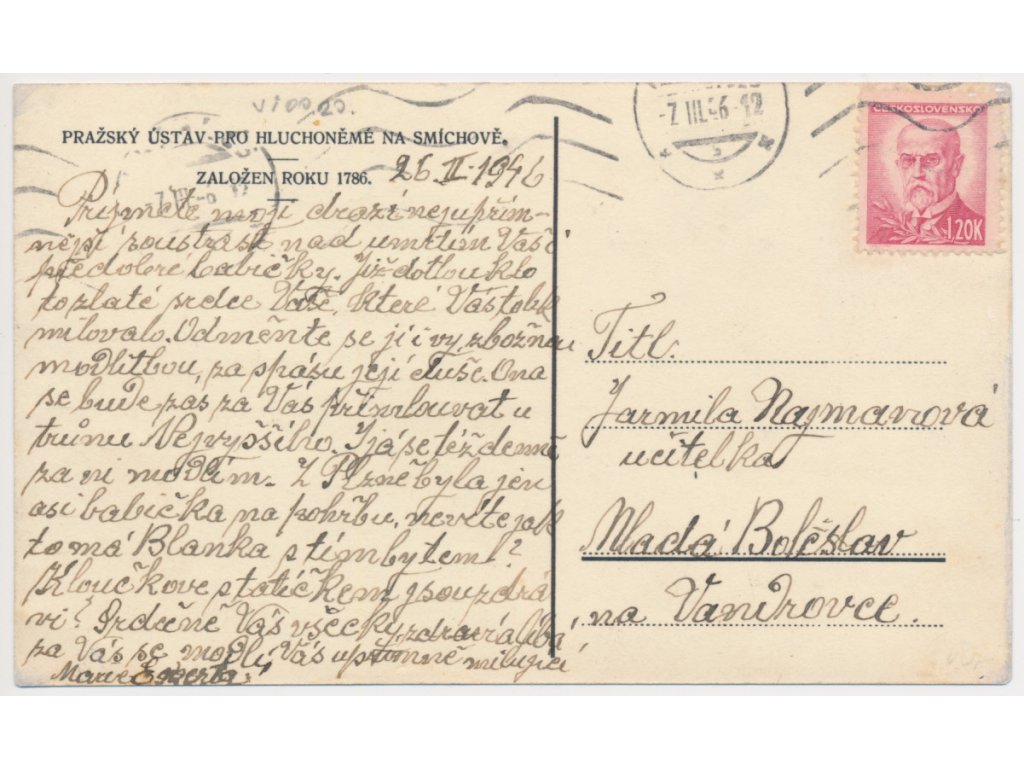 PRAŽSKÝ ÚSTAV PRO HLUCHONĚMÉ NA SMÍCHOVĚ.
ZALOŽEN ROKU 1786.
26 II. 1946
Přijměte moji drazí nejupřím-
nější soustrast nad umrtím Vaší
předobré babičky. Již dotlouklo
to zlaté srdce Vaše, které Vás tolik
milovalo. Odměňte se jí i vy, zbožnou
modlitbou, za spásu její duše. Ona
se bude zas za Vás přimlouvat u
trůnu Nejvyššího. I já se též denně
za ni modlím. Z Plzně byla jen
asi babička na pohřbu, nevíte jak
to má Blanka s tím bytem?
Kloučkove s tatíčkem jsou zdrá
vi? Srdečně Vás všecky zdraví a líbá,
za Vás se modlí, Vás upřímně milující
Marie
ČESKOSLOVENSKO
1,20K
-7 III.46-12
Titl.
Jarmila Najmanová
učitelka
Mladá Boleslav
na Vandrovce.